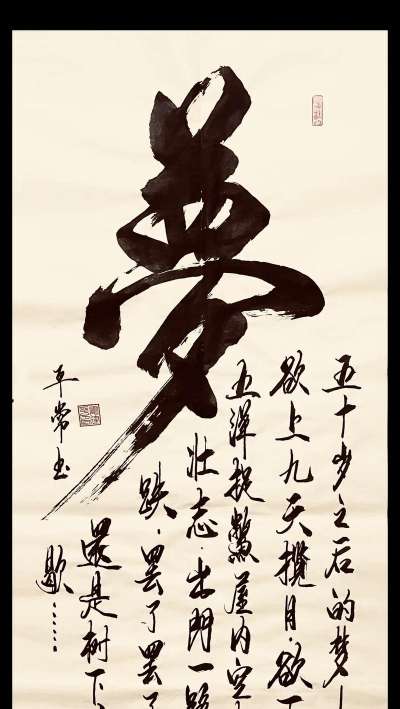 夢
五十岁之后的梦
欲上九天揽月·欲
五洋捉鳖屋内空
壮志·出門一路
跌·罢了罢了
還是树下
歇……
平常书